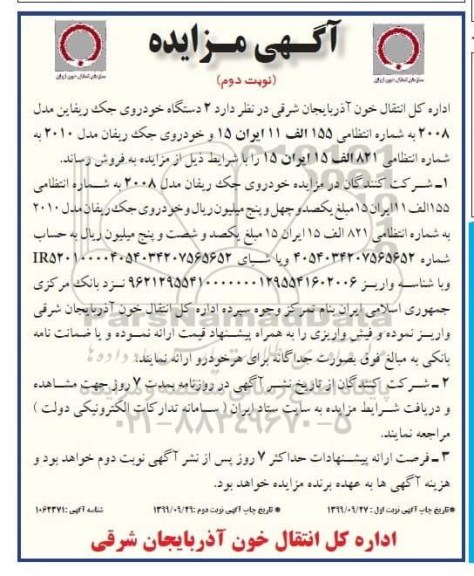 آگهی مزایده
(نوبت دوم)
سازمان انتقال خون ایران
سازمان انتقال خون ایران
اداره کل انتقال خون آذربایجان شرقی در نظر دارد ۲ دستگاه خودروی جک ریفاین مدل
۲۰۰۸ به شماره انتظامی ۱۵۵ الف ۱۱ ایران ۱۵ و خودروی جک ریفان مدل ۲۰۱۰ به
شماره انتظامی ۸۲۱ الف ۱۵ ایران ۱۵ را با شرایط ذیل از مزایده به فروش رساند.
۱ـ شرکت کنندگان در مزایده خودروی جک ریفان مدل ۲۰۰۸ به شماره انتظامی
۱۵۵الف۱۱ایران۱۵مبلغ یکصدوچهل و پنج میلیون ریال و خودروی جک ریفان مدل ۲۰۱۰
به شماره انتظامی ۸۲۱ الف ۱۵ ایران ۱۵ مبلغ یکصد و شصت و پنج میلیون ریال به حساب
شماره ۴۰۵۴۰۳۴۲۰۷۵۶۵۶۵۲ ویا شبای IR۵۲۰۱۰۰۰۰۴۰۵۴۰۳۴۲۰۷۵۶۵۶۵۲
وبا شناسه واریز ۹۶۲۱۲۹۵۵۴۱۰۰۰۰۰۰۰۱۲۹۵۵۴۱۶۰۲۰۰۶ نزد بانک مرکزی
جمهوری اسلامی ایران بنام تمرکز وجوه سپرده اداره کل انتقال خون آذربایجان شرقی
واریز نموده و فیش واریزی را به همراه پیشنهاد قیمت ارائه نموده و یا ضمانت نامه
بانکی به مبالغ فوق بصورت جداگانه برای هرخودرو ارائه نمایند.
۲ ـ شرکت کنندگان از تاریخ نشر آگهی در روزنامه بمدت ۷ روز جهت مشاهده
و دریافت شرایط مزایده به سایت ستاد ایران ( سامانه تدارکات الکترونیکی دولت )
مراجعه نمایند.
۳ ـ فرصت ارائه پیشنهادات حداکثر ۷ روز پس از نشر آگهی نوبت دوم خواهد بود و
هزینه آگهی ها به عهده برنده مزایده خواهد بود.
* تاریخ چاپ آگهی نوبت اول : ۱۳۹۹/۰۹/۲۷ * تاریخ چاپ آگهی نوبت دوم :۱۳۹۹/۰۹/۲۹ شناسه آگهی :۱۰۶۲۳۷۱
اداره کل انتقال خون آذربایجان شرقی
ParsNamadData
۰۲۱-۸۸۳۴۹۶۷۰-۵